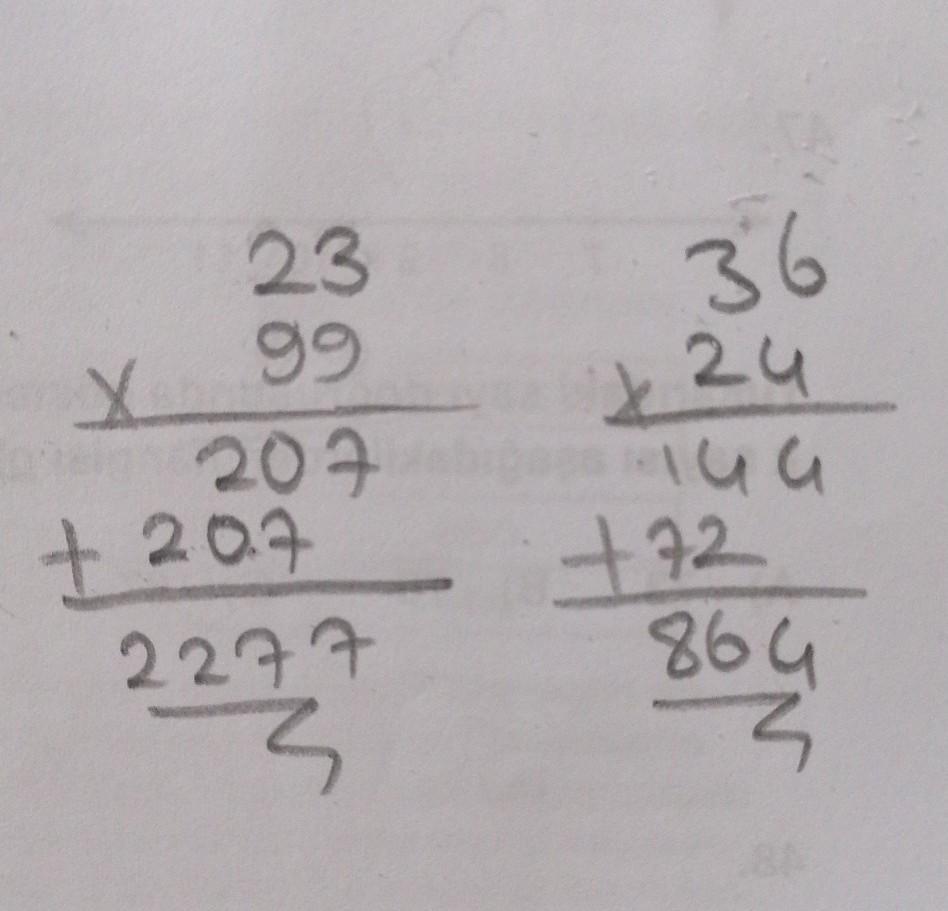 23
99
x
207
+ 207
2277
36
x 24
144
+72
864
47.
48.